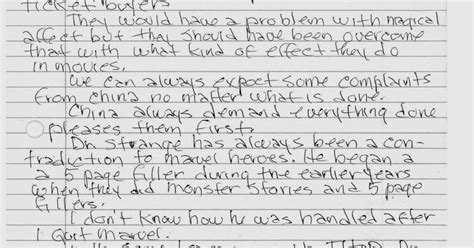 ticket buyers
They would have a problem with magical
affect but they should have been overcome
that with what kind of effect they do
in movies.
We can always expect some complaints
from china no matter what is done.
China always demand everything done
pleases them first.
Dr. Strange has always been a con-
tradiction to marvel heroes. He began a
a 5 page filler during the earlier years
when they did monster stories and 5 page
fillers.
I don't know how he was handled after
I Quit Marvel.